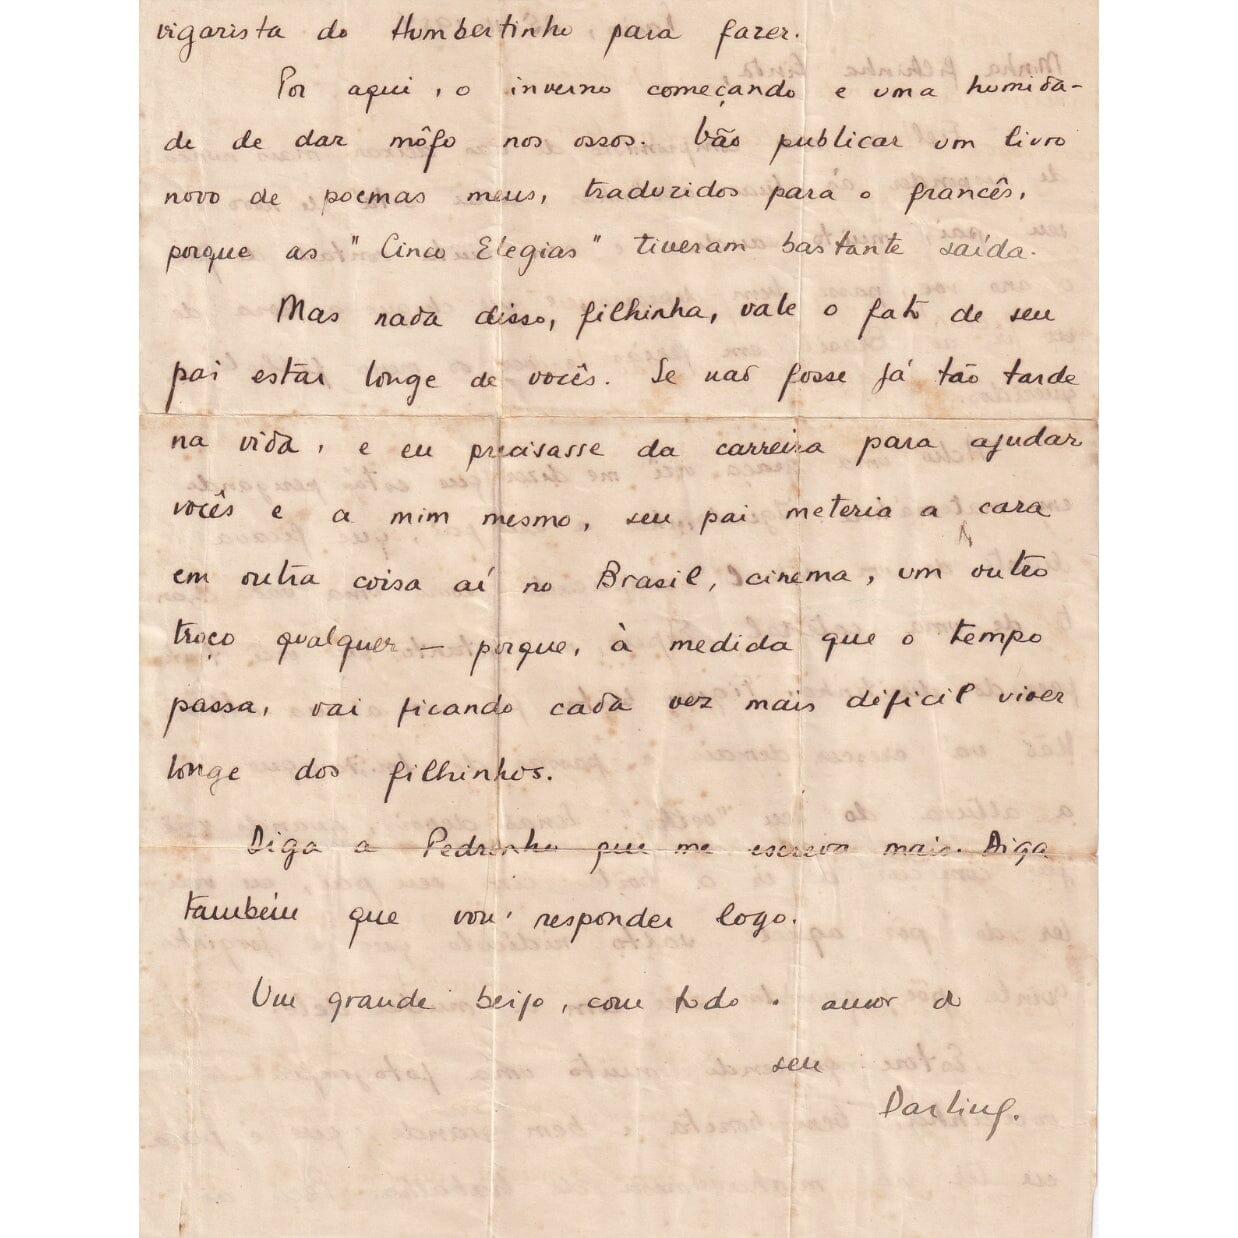 vigarista do Humbertinho, para fazer.
Por aqui, o inverno começando e uma humida-
de de dar môfo nos ossos. Vão publicar um livro
novo de poemas meus, traduzidos para o francês,
porque as "Cinco Elegias" tiveram bastante saída.
Mas nada disso, filhinha, vale o fato de seu
pai estar longe de vocês. Se não fosse já tão tarde
na vida, e eu precisasse da carreira para ajudar
vocês e a mim mesmo, seu pai meteria a cara
em outra coisa aí no Brasil, cinema, um outro
troço qualquer — porque, à medida que o tempo
passa, vai ficando cada vez mais dificil viver
longe dos filhinhos.
Diga a Pedrinho que me escreva mais. Diga
também que vou responder logo.
Um grande beijo, com todo o amor do
seu
Darling.